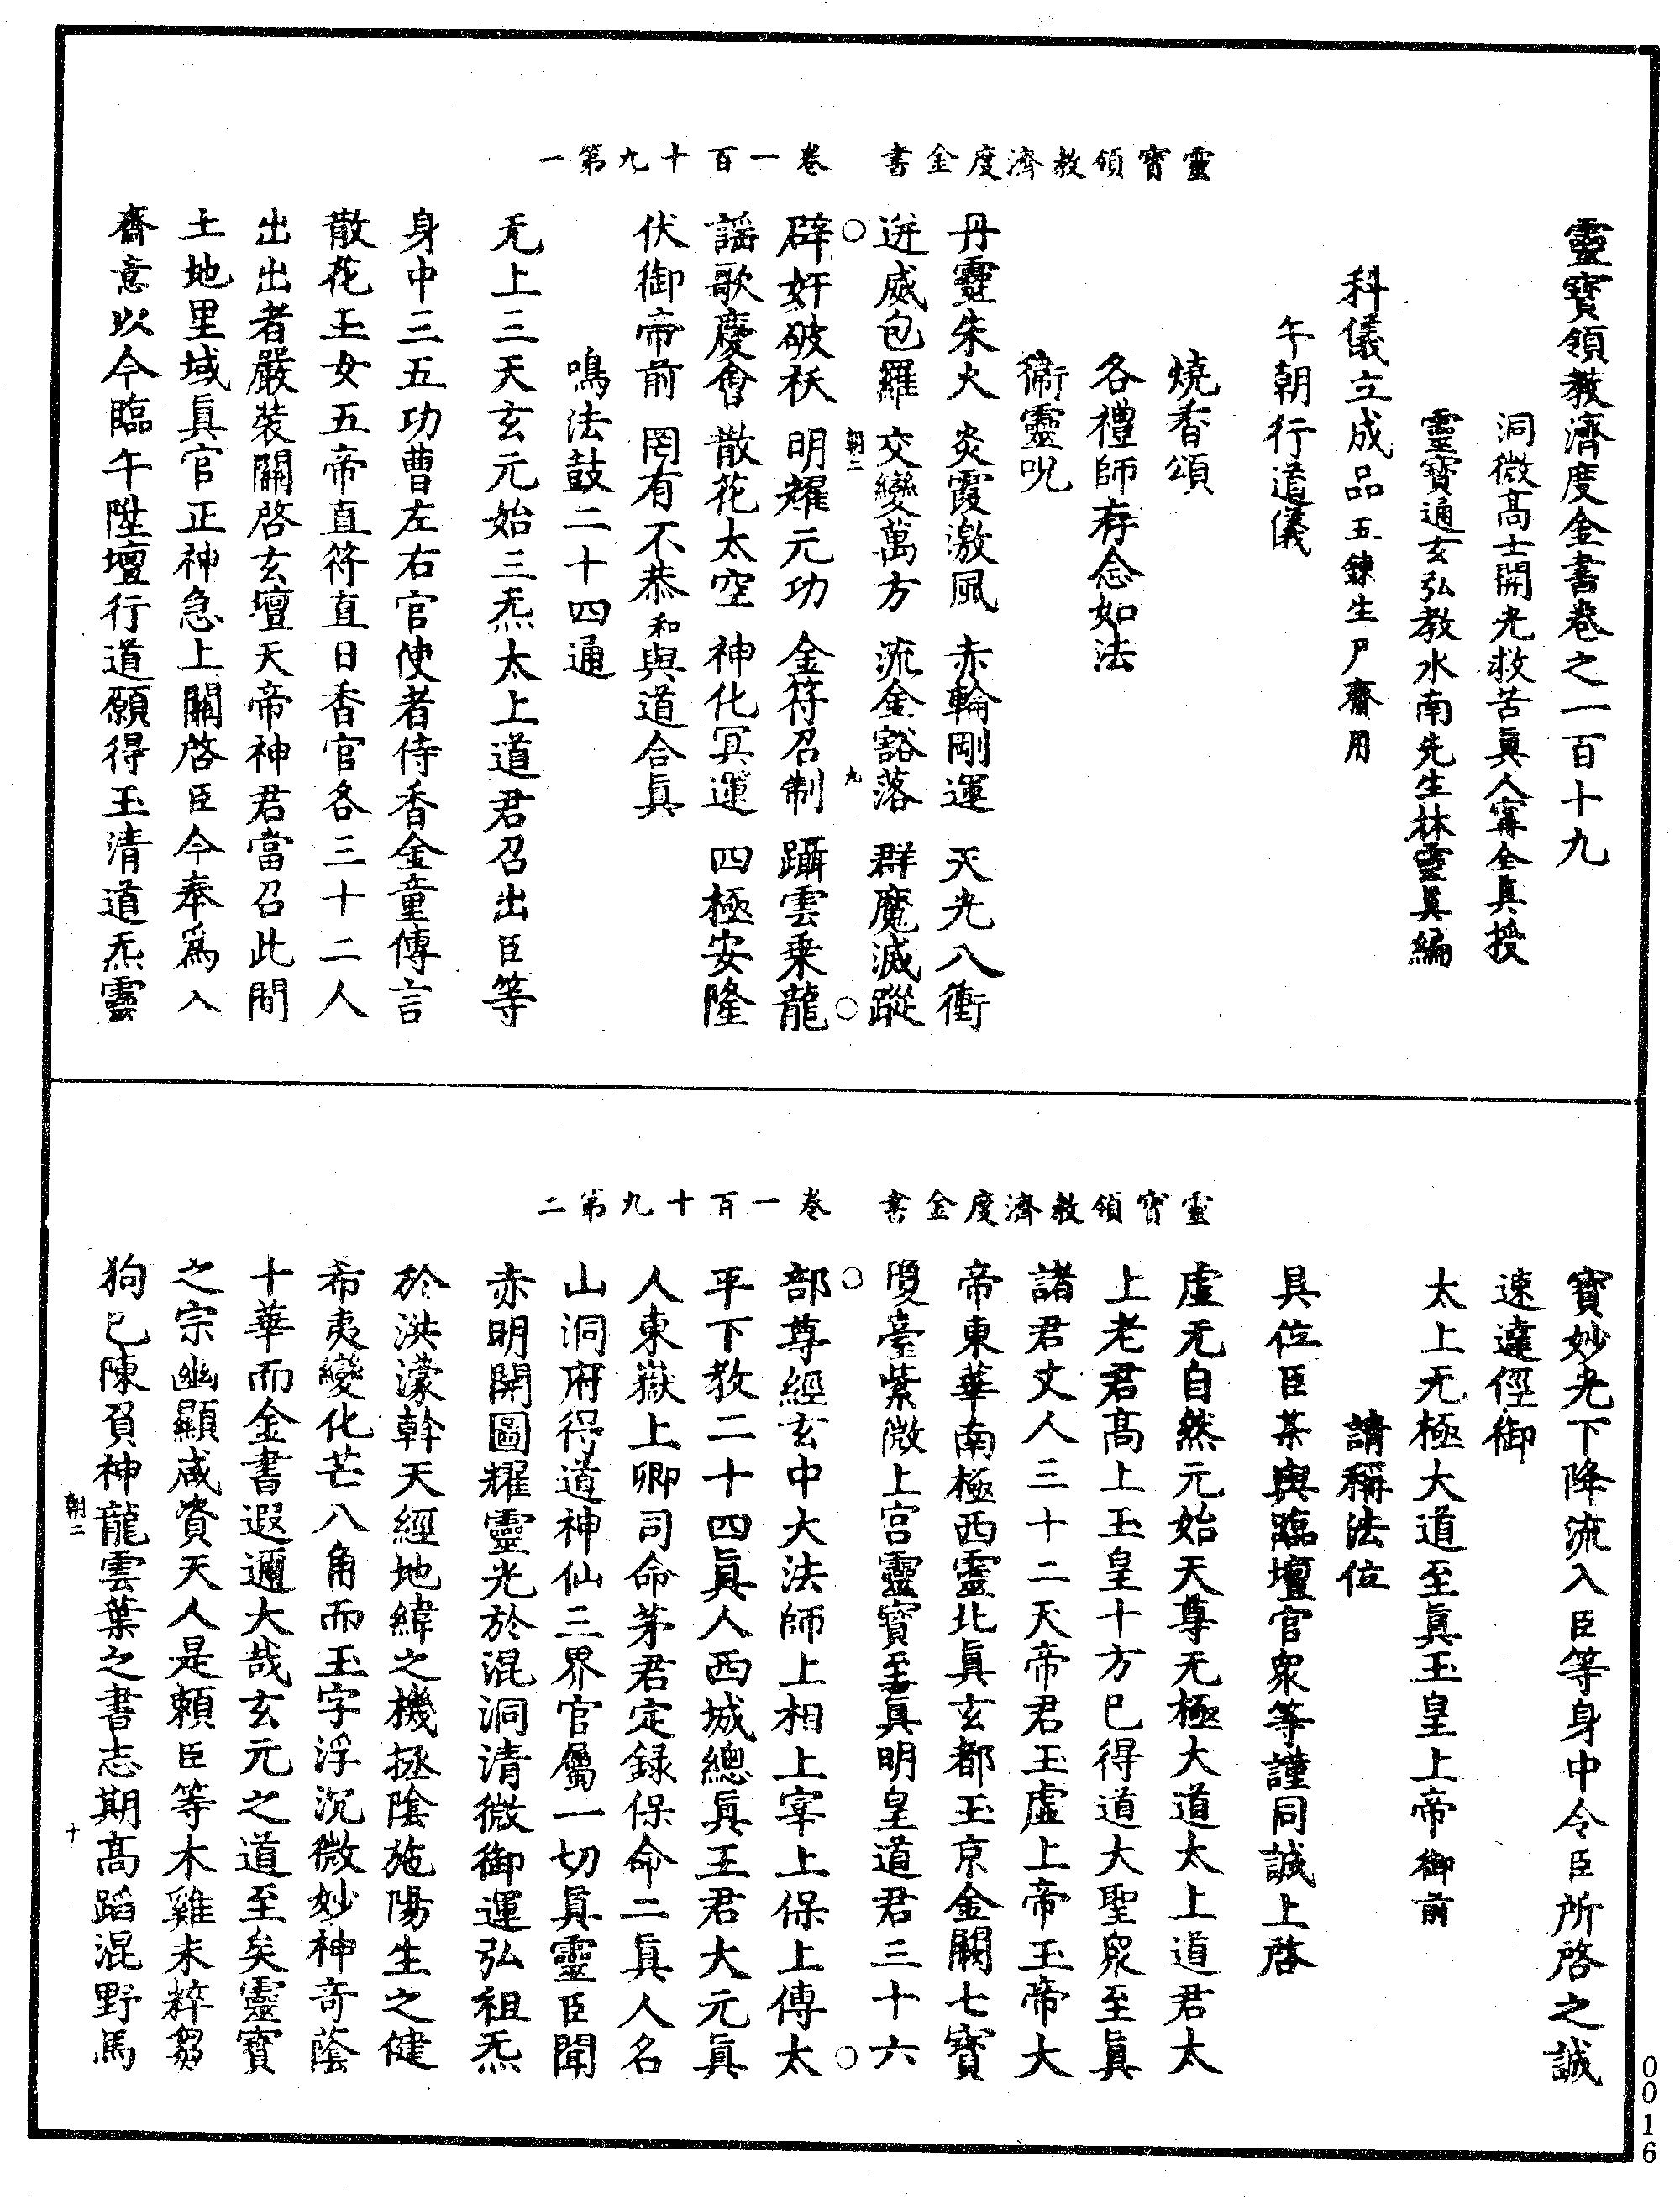 靈寶領教濟度金書　卷一百十九第一
靈寶領教濟度金書卷之一百十九
洞微高士開光救苦眞人甯全真授
靈寶通玄弘教水南先生林靈眞編
科儀立成品五鍊生尸齋用
午朝行道儀
燒香頌
各禮師存念如法
衞靈呪
丹靈朱火　炎霞激風　赤輪剛運　天光八衝
迸威包羅　交變萬方　流金豁落　群魔滅蹤
朝二　九
辟奸破袄　明耀元功　金符召制　躡雲乗龍
謡歌慶會　散花太空　神化冥運　四極安隆
伏御帝前　罔有不恭和與道合眞
鳴法鼓二十四通
无上三天玄元始三炁太上道君召出臣等
身中三五功曹左右官使者侍香金童傳言
散花玉女五帝直符直日香官各三十二人
出出者嚴裝關啓玄壇天帝神君當召此間
土地里域眞官正神急上關啓臣今奉爲入
齋意以今臨午陞壇行道願得玉清道炁靈
靈寶領教濟度金書　卷一百十九第二
寶妙光下降流入臣等身中令臣所啓之誠
速達徑御
太上无極大道至眞玉皇上帝御前
請稱法位
具位臣某與臨壇官衆等謹同誠上啓
虛无自然元始天尊无極大道太上道君太
上老君高上玉皇十方已得道大聖衆至眞
諸君丈人三十二天帝君玉虛上帝玉帝大
帝東華南極西靈北眞玄都玉京金闕七寶
瓊臺紫微上宮靈寶至眞明皇道君三十六
部尊經玄中大法師上相上宰上保上傅太
平下教二十四眞人西城總眞王君大元眞
人東嶽上卿司命茅君定録保命二眞人名
山洞府得道神仙三界官屬一切眞靈臣聞
赤明開圖耀靈光於混洞清微御運弘祖炁
於洪濛斡天經地緯之機拯陰施陽生之健
希夷變化芒八角而玉字浮沉微妙神奇蔭
十華而金書遐邇大哉玄元之道至矣靈寶
之宗幽顯咸資天人是頼臣等木雞未粹芻
狗已陳負神龍雲葉之書志期高蹈混野馬
朝二　十
0016